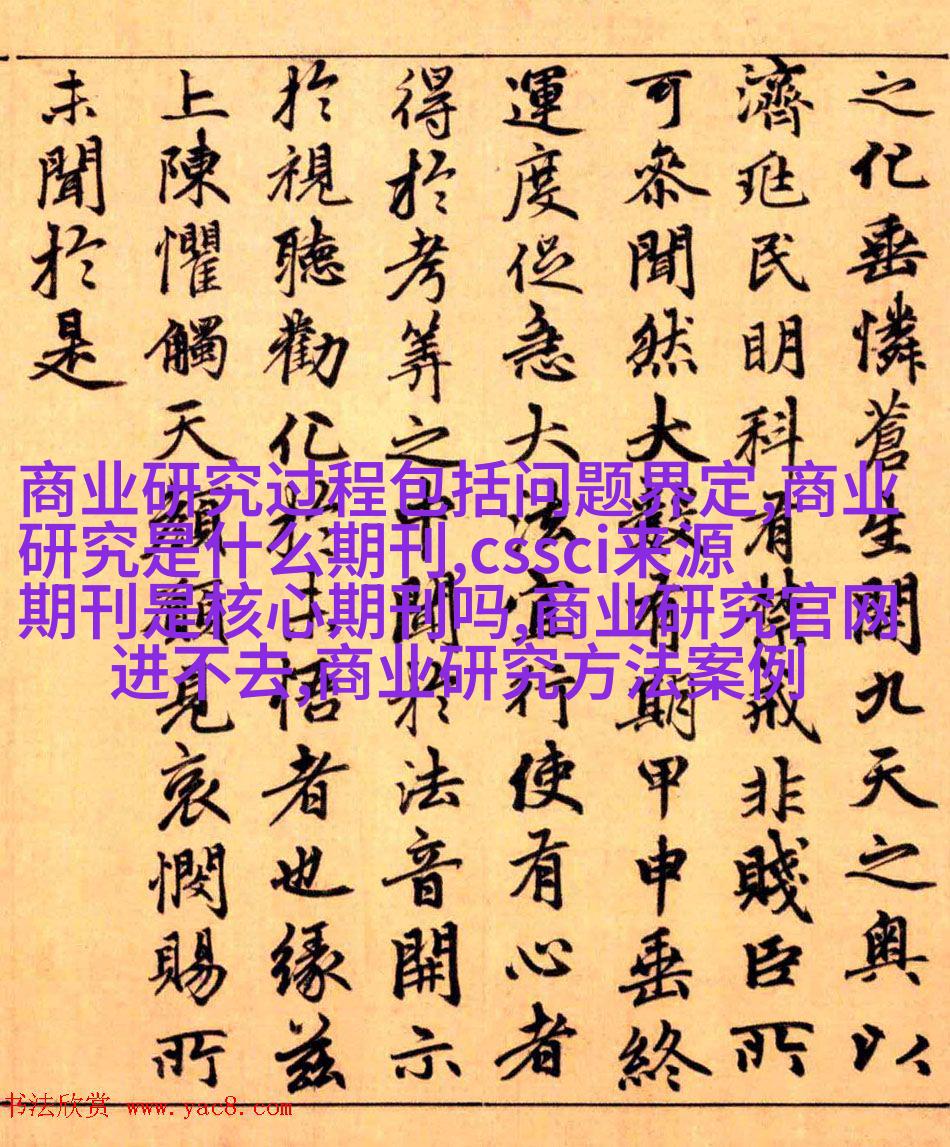 之化垂憐蒼生開九天之奥以
濟兆民明科有禁戒非賤臣所
可叅聞然大數有期甲申垂終
運度促急大法宜行使有心者
得於考筭之中聞於法音開示
於視聽勸化於未悟者也緣兹
上陳懼觸天顔願見哀憫賜所
未聞於是
商业研究过程包括问题界定,商业
研究是什么期刊,cssci来源
期刊是核心期刊吗,商业研究官网
进不去,商业研究方法案例
书法欣赏 www.yac8.com